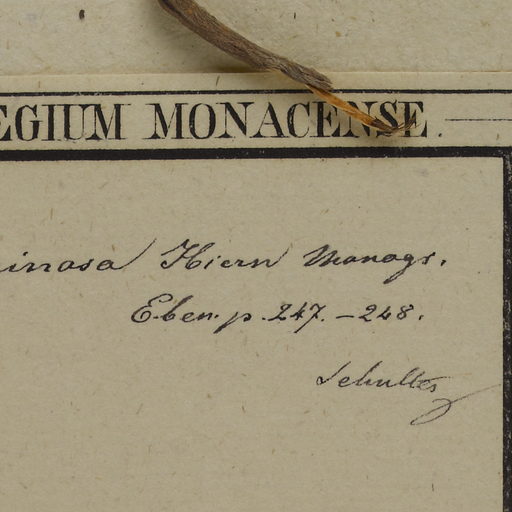 EGIUM MONACENSE.
inosa Hiern Monogr.
Eben. p. 247. – 248.
Schultes